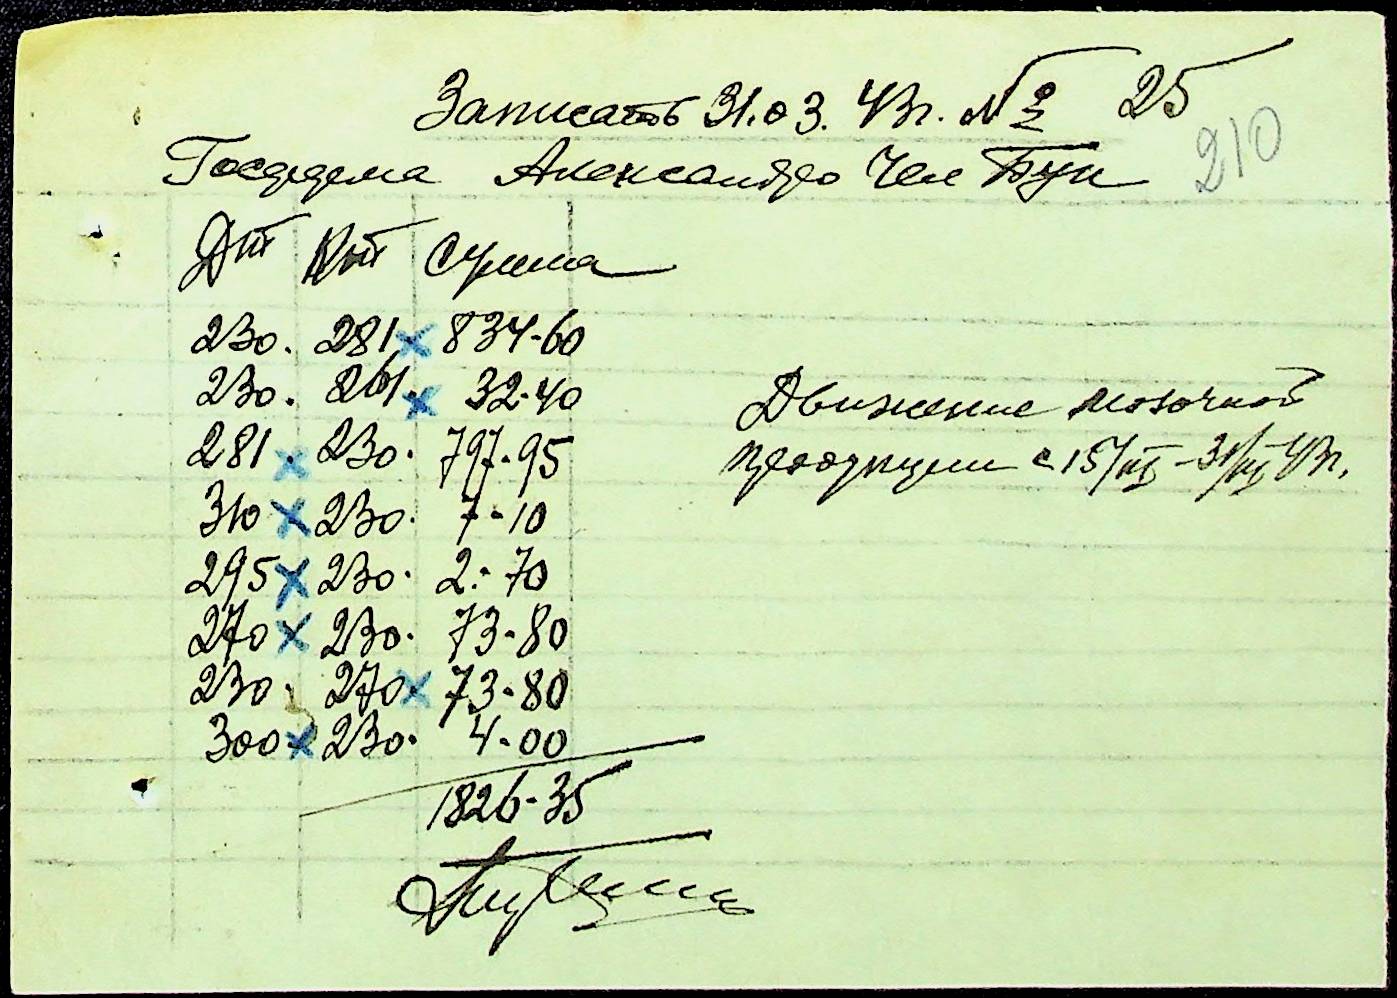 Записать 31.03.43г. № 25
210
Госферма Александро Чел
Дт Кт Сумма
230. 281 834-60
230. 261. 32-40
281. 230. 797-95
310 230. 7-10
295 230. 2-70
270 230. 73-80
230. 270 73-80
300 230. 4-00
1826-35
Движение молочной
продукции с 15/III-31/III 43г.